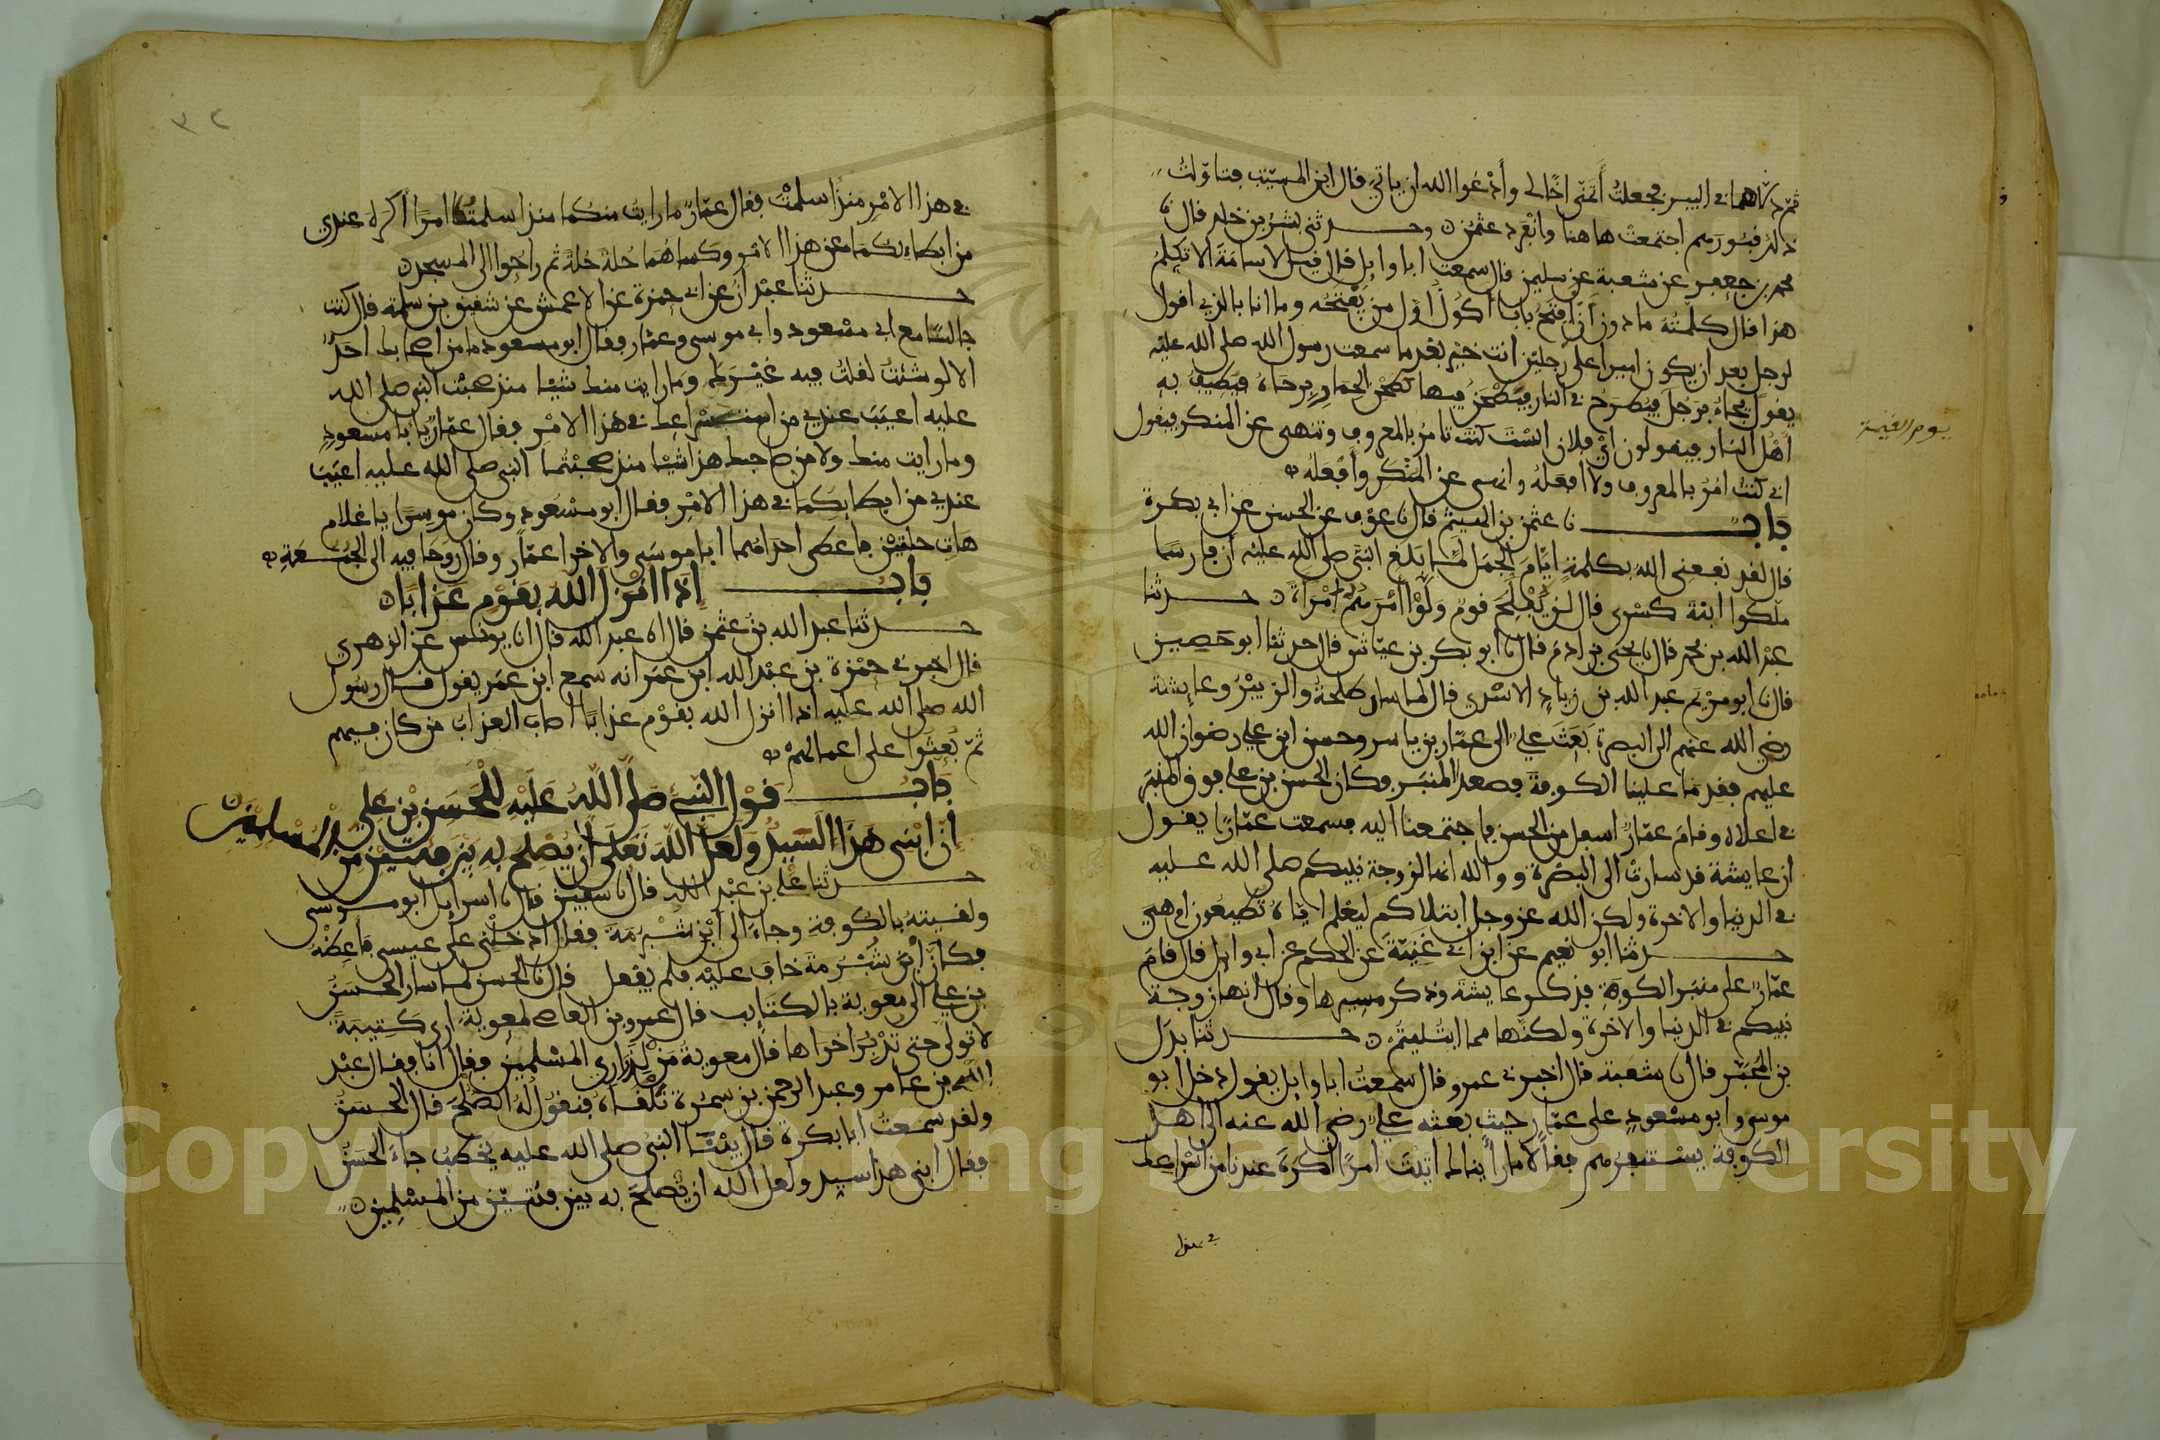 ثم دلاهما في البير فجعلت أتمنى أخا لي وأدعوا الله ان ياتي قال ابن المسيب فتاولت
ذلك قبورهم اجتمعت هاهنا وانفرد عثمن حدثني بشر بن خلد قال نا
محمد بن جعفر عن شعبة عن سليمن قال سمعت ابا وايل قال قيل لاسامة الا تكلم
هذا قال كلمته ما دون أن افتح بابا أكون أول من يفتحه وما انا بالذي اقول
لرجل بعد ان يكون اميرا على رجلين انت خير بعد ما سمعت رسول الله صلى الله عليه
يقول يجاء برجل فيطرح في النار فيطحن فيها كطحن الحمار برحاه فيطيف به
أهل النار فيقولون اي فلان الست كنت تامر بالمعروف وتنهى عن المنكر فيقول
اني كنت امر بالمعروف ولا افعله وانهى عن المنكر وأفعله
باب نا عثمن بن الهيثم قال نا عوف عن الحسن عن ابي بكرة
قال لقد نفعني الله بكلمة ايام الجمل لما بلغ النبي صلى الله عليه أن فارسا
ملكوا ابنة كسرى قال لن يفلح قوم ولوا امرهم امرأة حدثنا
عبد الله بن محمد قال نا يحيى بن ادم قال نا ابو بكر بن عياش قال حدثنا ابو حصين
قال نا ابو مريم عبد الله بن زياد الاسدي قال لما سار طلحة والزبير وعايشة
رضي الله عنهم الى البصرة بعث علي الى عمار بن ياسر وحسن ابن علي رضوان الله
عليهم فقدما علينا الكوفة فصعدا المنبر فكان الحسن بن علي فوق المنبر
في اعلاه وقام عمار اسفل من الحسن فاجتمعنا اليه فسمعت عمارا يقول
ان عايشة قد سارت الى البصرة ووالله انها لزوجة نبيكم صلى الله عليه
في الدنيا والاخرة ولكن الله عز وجل ابتلاكم ليعلم اياه تطيعون ام هي
حدثنا ابو نعيم عن ابن ابي غنية عن الحكم عن ابي وايل قال قام
عمار على منبر الكوفة فذكر عايشة وذكر مسيرها وقال انها زوجة
نبيكم في الدنيا والاخرة ولكنها مما ابتليتم حدثنا بدل
بن المحبر قال نا شعبة قال اخبرني عمرو قال سمعت ابا وايل يقول دخل ابو
موسى وابو مسعود على عمار حيث بعثه علي رضي الله عنه الى اهل
الكوفة يستنفرهم فقالا ما رأيناك اتيت امرا اكره عندنا من اسراعك
في هذا
يوم القيمة
في هذا الامر منذ اسلمت فقال عمار ما رايت منكما منذ اسلمتما امرا أكره عندي
من ابطائكما عن هذا الامر وكساهما حلة حلة ثم راحوا الى المسجد
حدثنا عبدان عن ابي حمزة عن الاعمش عن شقيق بن سلمة قال كنت
جالسا مع ابي مسعود وابي موسى وعمار فقال ابو مسعود ما من اصحابك احد
الا لو شئت لقلت فيه غيرك وما رايت منك شيئا منذ صحبت النبي صلى الله
عليه اعيب عندي من اسراعك في هذا الامر فقال عمار يا با مسعود
وما رايت منك ولا من صاحبك هذا شيئا منذ صحبتما النبي صلى الله عليه اعيب
عندي من ابطائكما في هذا الامر فقال ابو مسعود وكان موسرا يا غلام
هات حلتين فاعطى احداهما ابا موسى والاخرا عمار وقال روحا فيه الى الجمعة
باب إذا انزل الله بقوم عذابا
حدثنا عبد الله بن عثمن قال انا عبد الله قال انا يونس عن الزهري
قال اخبرني حمزة بن عبد الله ابن عمر انه سمع ابن عمر يقول قال رسول
الله صلى الله عليه اذا انزل الله بقوم عذابا اصاب العذاب من كان فيهم
ثم بعثوا على اعمالهم
باب قول النبي صلى الله عليه للحسن بن علي
ان ابني هذا السيد ولعل الله تعلى أن يصلح به بين فئتين من المسلمين
حدثنا علي بن عبد الله قال نا سفين قال نا اسرايل ابو موسى
ولقيته بالكوفة وجاء الى ابن شبرمة فقال ادخلني على عيسى فاعظه
فكأن ابن شبرمة خاف عليه فلم يفعل قال نا الحسن لما سار الحسن
بن علي الى معوية بالكتايب قال عمرو بن العاص لمعوية ارى كتيبة
لا تولى حتى تدبر اخراها قال معوية من لذراري المسلمين فقال انا فقال عبد
الله بن عامر وعبد الرحمن بن سمرة تلقاه فنقول له الصلح قال الحسن
ولقد سمعت ابا بكرة قال بينما النبي صلى الله عليه يخطب جاء الحسن
فقال ابني هذا سيد ولعل الله ان يصلح به بين فئتين من المسلمين
Copyright © King Saud University